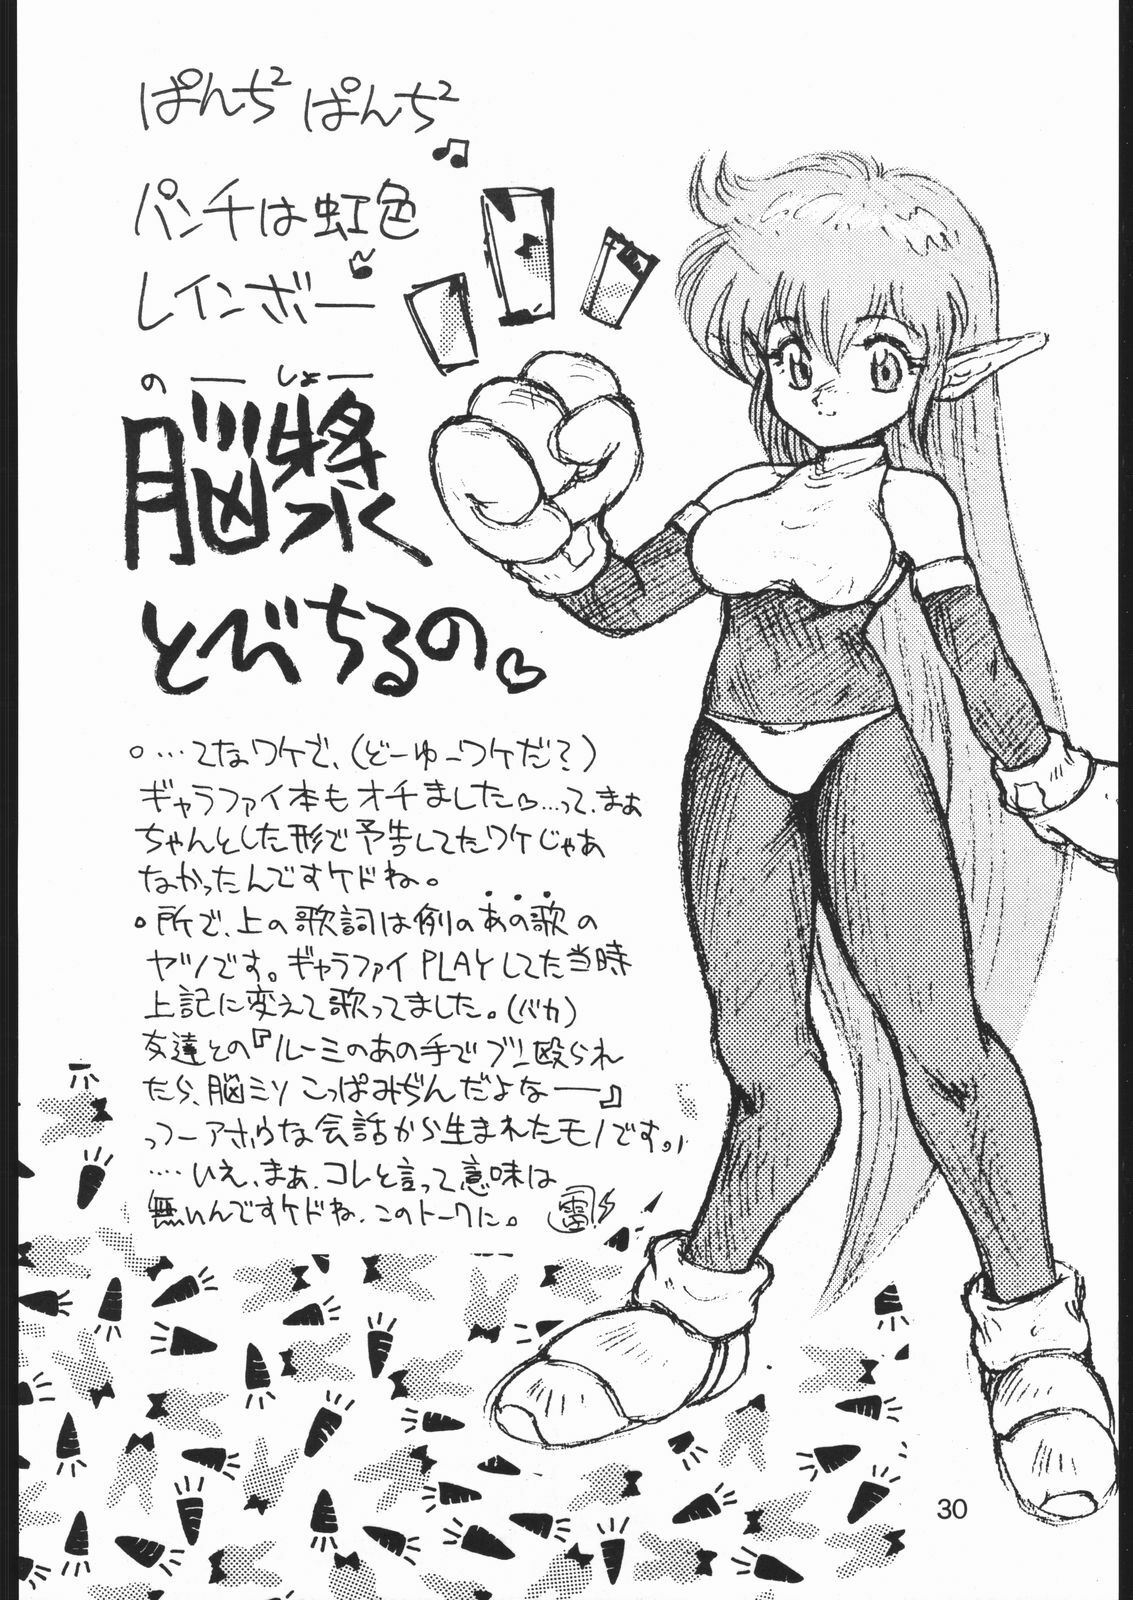 ぱんち² ぱんち²♪
パンチは虹色
レインボー
のーしょー
脳漿
とびちるの♡
○…てなワケで、(どーゆーワケだ?)
ギャラファイ本もオチました♡…って、まぁ
ちゃんとした形で予告してたワケじゃあ
なかったんですケドね。
○所で、上の歌詞は例のあの歌の
ヤツです。ギャラファイPLAYしてた当時
上記に変えて歌ってました。(バカ)
友達との『ルーミのあの手でブン殴られ
たら、脳ミソこっぱみぢんだよなー』
っつーアホウな会話から生まれたモノです。
…いえ、まぁ、コレと言って意味は
無いんですケドね、このトークに。
30